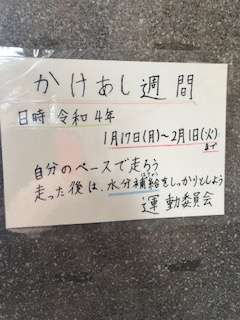 かけあし週間
日時 令和4年
1月17日(月)～2月1日(火)
まで
自分のペースで走ろう
走った後は、水分補給をしっかりとしよう
運動委員会